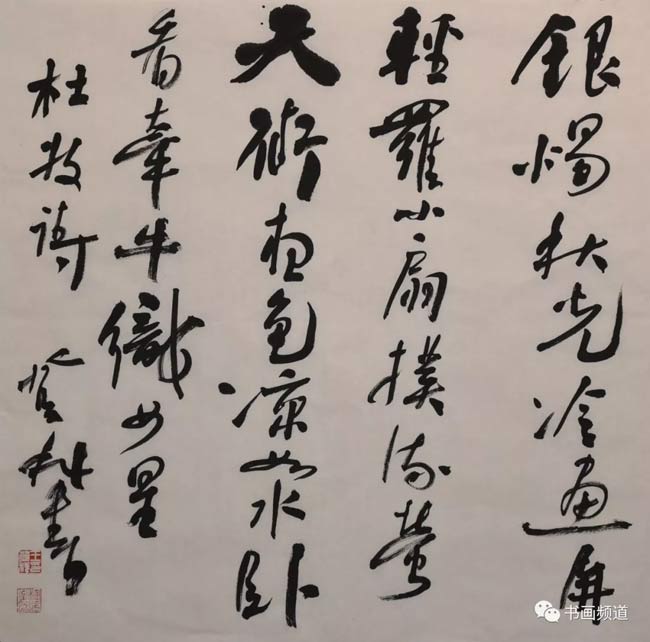 銀燭秋光冷画屏
輕羅小扇撲流螢
天街夜色凉如水卧
看牽牛織女星
杜牧詩 登科書
书画频道